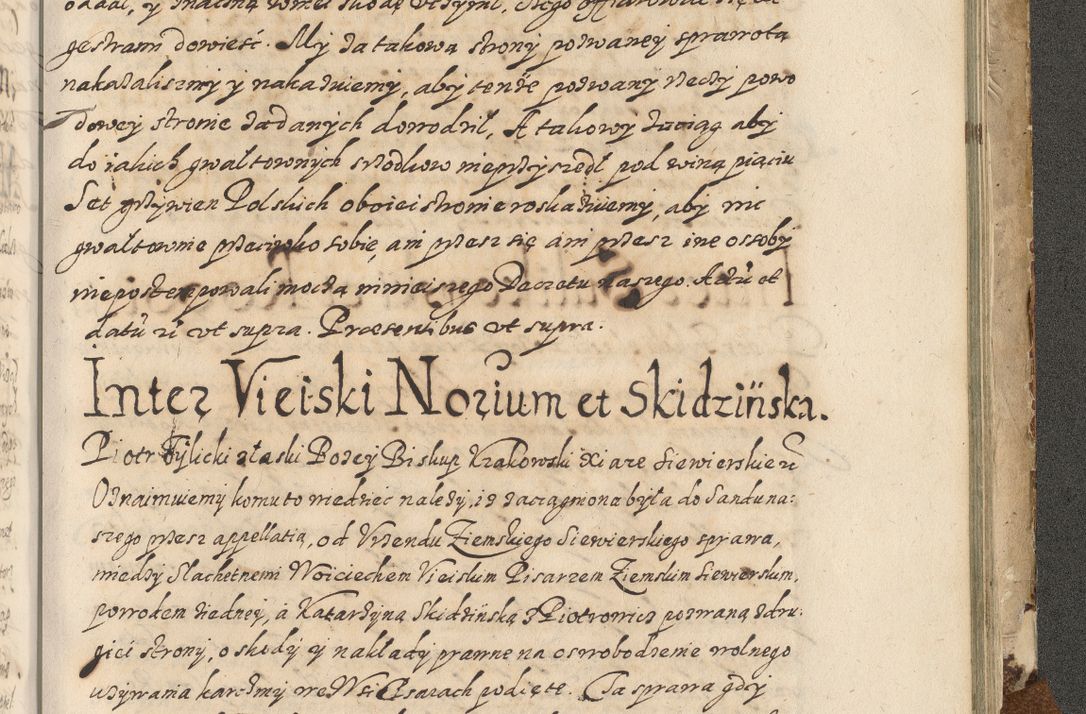 gestram dowiesć. My za takową strony pozwaney sprawotą
nakazalismy y nakazuiemy, aby tenże pozwany rzeczy powo
dowey stronie zadanych dowodził, A takowy zaciąg aby
do iakich gwaltownych srzodkow nieprzyszedł pod winą pięciu
Set grzywien Polskich oboiei stronie roskazuiemy, aby nic
gwaltownie przeciwko sobie, ani przesz się ani przesz ine ossoby
niepostempowali moczą ninieiszego Decretu naszego. Actũ et
datũ ut supra. Praesentibus ut supra.
Inter Vieiski Norium et Skidzińska.
Piotr Tylicki z łaski Bozey Biskup Krakowski Xiąze Siewierskie
Oznaimuiemy komu to wiedziec nalezy, iz zaciągniona była do Sandu na:
szego przesz appellatią, od Urzendu Ziemskiego Siewierskiego sprawa,
miedzy Slachetnem Woiciechem Vieiskim Pisarzem Ziemskim Siewierskim,
powodem ziedney, a Katarzyną Skidzinską z Piotrowic pozwaną zdru:
giei strony, o skody y nakłady prawne na oswobodzenie wolnego
uzywania karczmy we Wsi Psarach podięte. Ta sprawa gdy